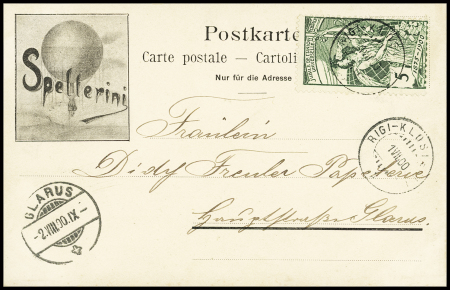 Postkarte
Carte postale — Cartoli
Nur für die Adresse
Spelterini
5
RIGI-KLÖST
1.VIII.00
Fräulein
Didy Freuler Papeterie
Hauptstrasse Glarus.
GLARUS
-2.VIII.00.IX-